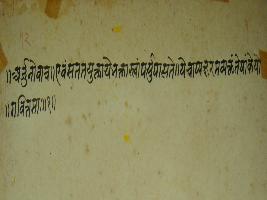 १२
॥अर्जुनोवाच॥एवंसततयुक्तायेभक्तास्त्वांपर्युपासते॥येचाप्यक्षरमव्यक्तंतेषांकेयो
॥गवित्तमाः॥१॥